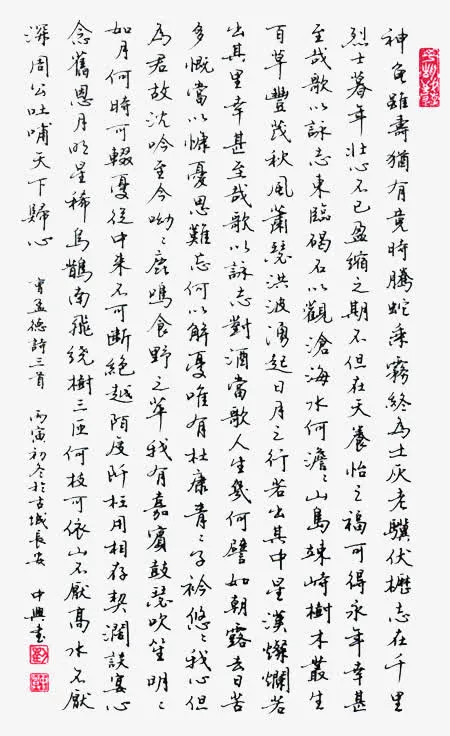 神龜雖壽猶有竟時騰蛇乘霧終為土灰老驥伏櫪志在千里
烈士暮年壯心不已盈縮之期不但在天養怡之福可得永年幸甚
至哉歌以詠志東臨碣石以觀滄海水何澹〻山島竦峙樹木叢生
百草豐茂秋風蕭瑟洪波湧起日月之行若出其中星漢燦爛若
出其里幸甚至哉歌以詠志對酒當歌人生幾何譬如朝露去日苦
多慨當以慷憂思難忘何以解憂唯有杜康青〻子衿悠〻我心但
為君故沈吟至今呦〻鹿鳴食野之苹我有嘉賓鼓瑟吹笙明〻
如月何時可輟憂從中來不可斷絕越陌度阡枉用相存契闊談宴心
念舊恩月明星稀烏鵲南飛繞樹三匝何枝可依山不厭高水不厭
深周公吐哺天下歸心 曹孟德詩三首 丙寅初冬於古城長安 中興書